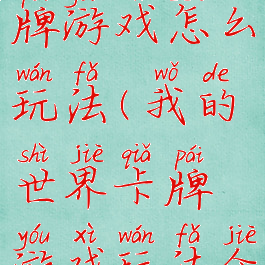 牌游戏怎么
wán fǎ wǒ de
玩法(我的
shì jiè qiǎ pái
世界卡牌
yóu xì wán fǎ jiè
游戏玩法介